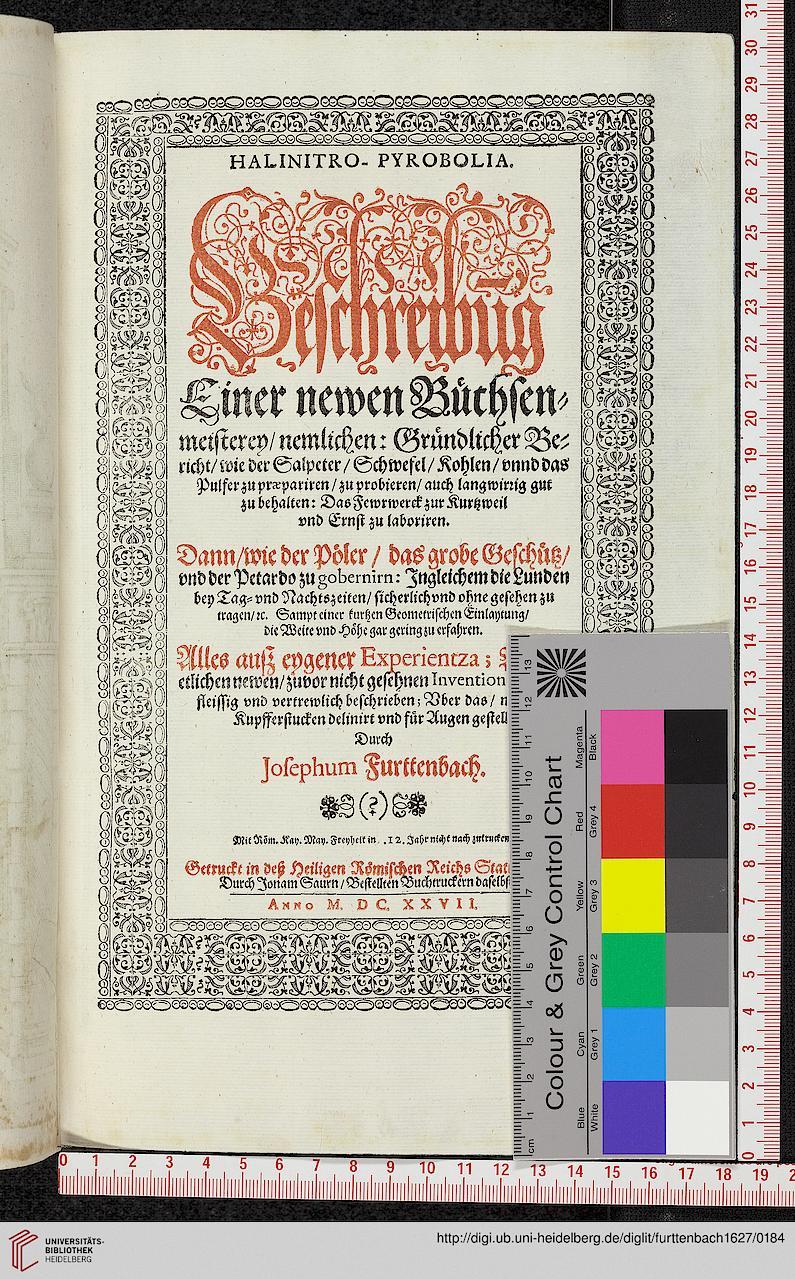 HALINITRO- PYROBOLIA.
Beschreibūg
Einer newen Büchsen-
meisterey/ nemlichen: Gründlicher Be-
richt/ wie der Salpeter/ Schwefel/ Kohlen/ vnnd das
Pulfer zu præpariren/ zu probieren/ auch langwirrig gut
zu behalten: Das Fewrwerck zur Kurtzweil
vnd Ernst zu laboriren.
Dann/ wie der Pöler / das grobe Geschütz/
vnd der Petardo zu gobernirn: Ingleichem die Lunden
bey Tag- vnd Nachtszeiten/ sicherlich vnd ohne gesehen zu
tragen/ ꝛc. Sampt einer kurtzen Geometrischen Einlaytung/
die Weite vnd Höhe gar gering zu erfahren.
Alles auß eygener Experientza;
etlichen newen/ zuvor nicht gesehnen Invention
fleissig vnd vertrewlich beschrieben; Vber das/
Kupfferstucken delinirt vnd für Augen gestell
Durch
Josephum Furttenbach.
Mit Röm. Kay. May. Freyheit in .12. Jahr nicht nach zutrucken
Getruckt in deß Heiligen Römischen Reichs Stat
Durch Jonam Saurn/ Bestellten Buchtruckern daselbs
ANNO M. DC. XXVII.
Colour & Grey Control Chart
Blue Cyan Green Yellow Red Magenta
White Grey 1 Grey 2 Grey 3 Grey 4 Black
cm 1 2 3 4 5 6 7 8 9 10 11 12 13
0 1 2 3 4 5 6 7 8 9 10 11 12 13 14 15 16 17 18 19 2
0 1 2 3 4 5 6 7 8 9 10 11 12 13 14 15 16 17 18 19 20 21 22 23 24 25 26 27 28 29 30 31
UNIVERSITÄTS-
BIBLIOTHEK
HEIDELBERG
http://digi.ub.uni-heidelberg.de/diglit/furttenbach1627/0184